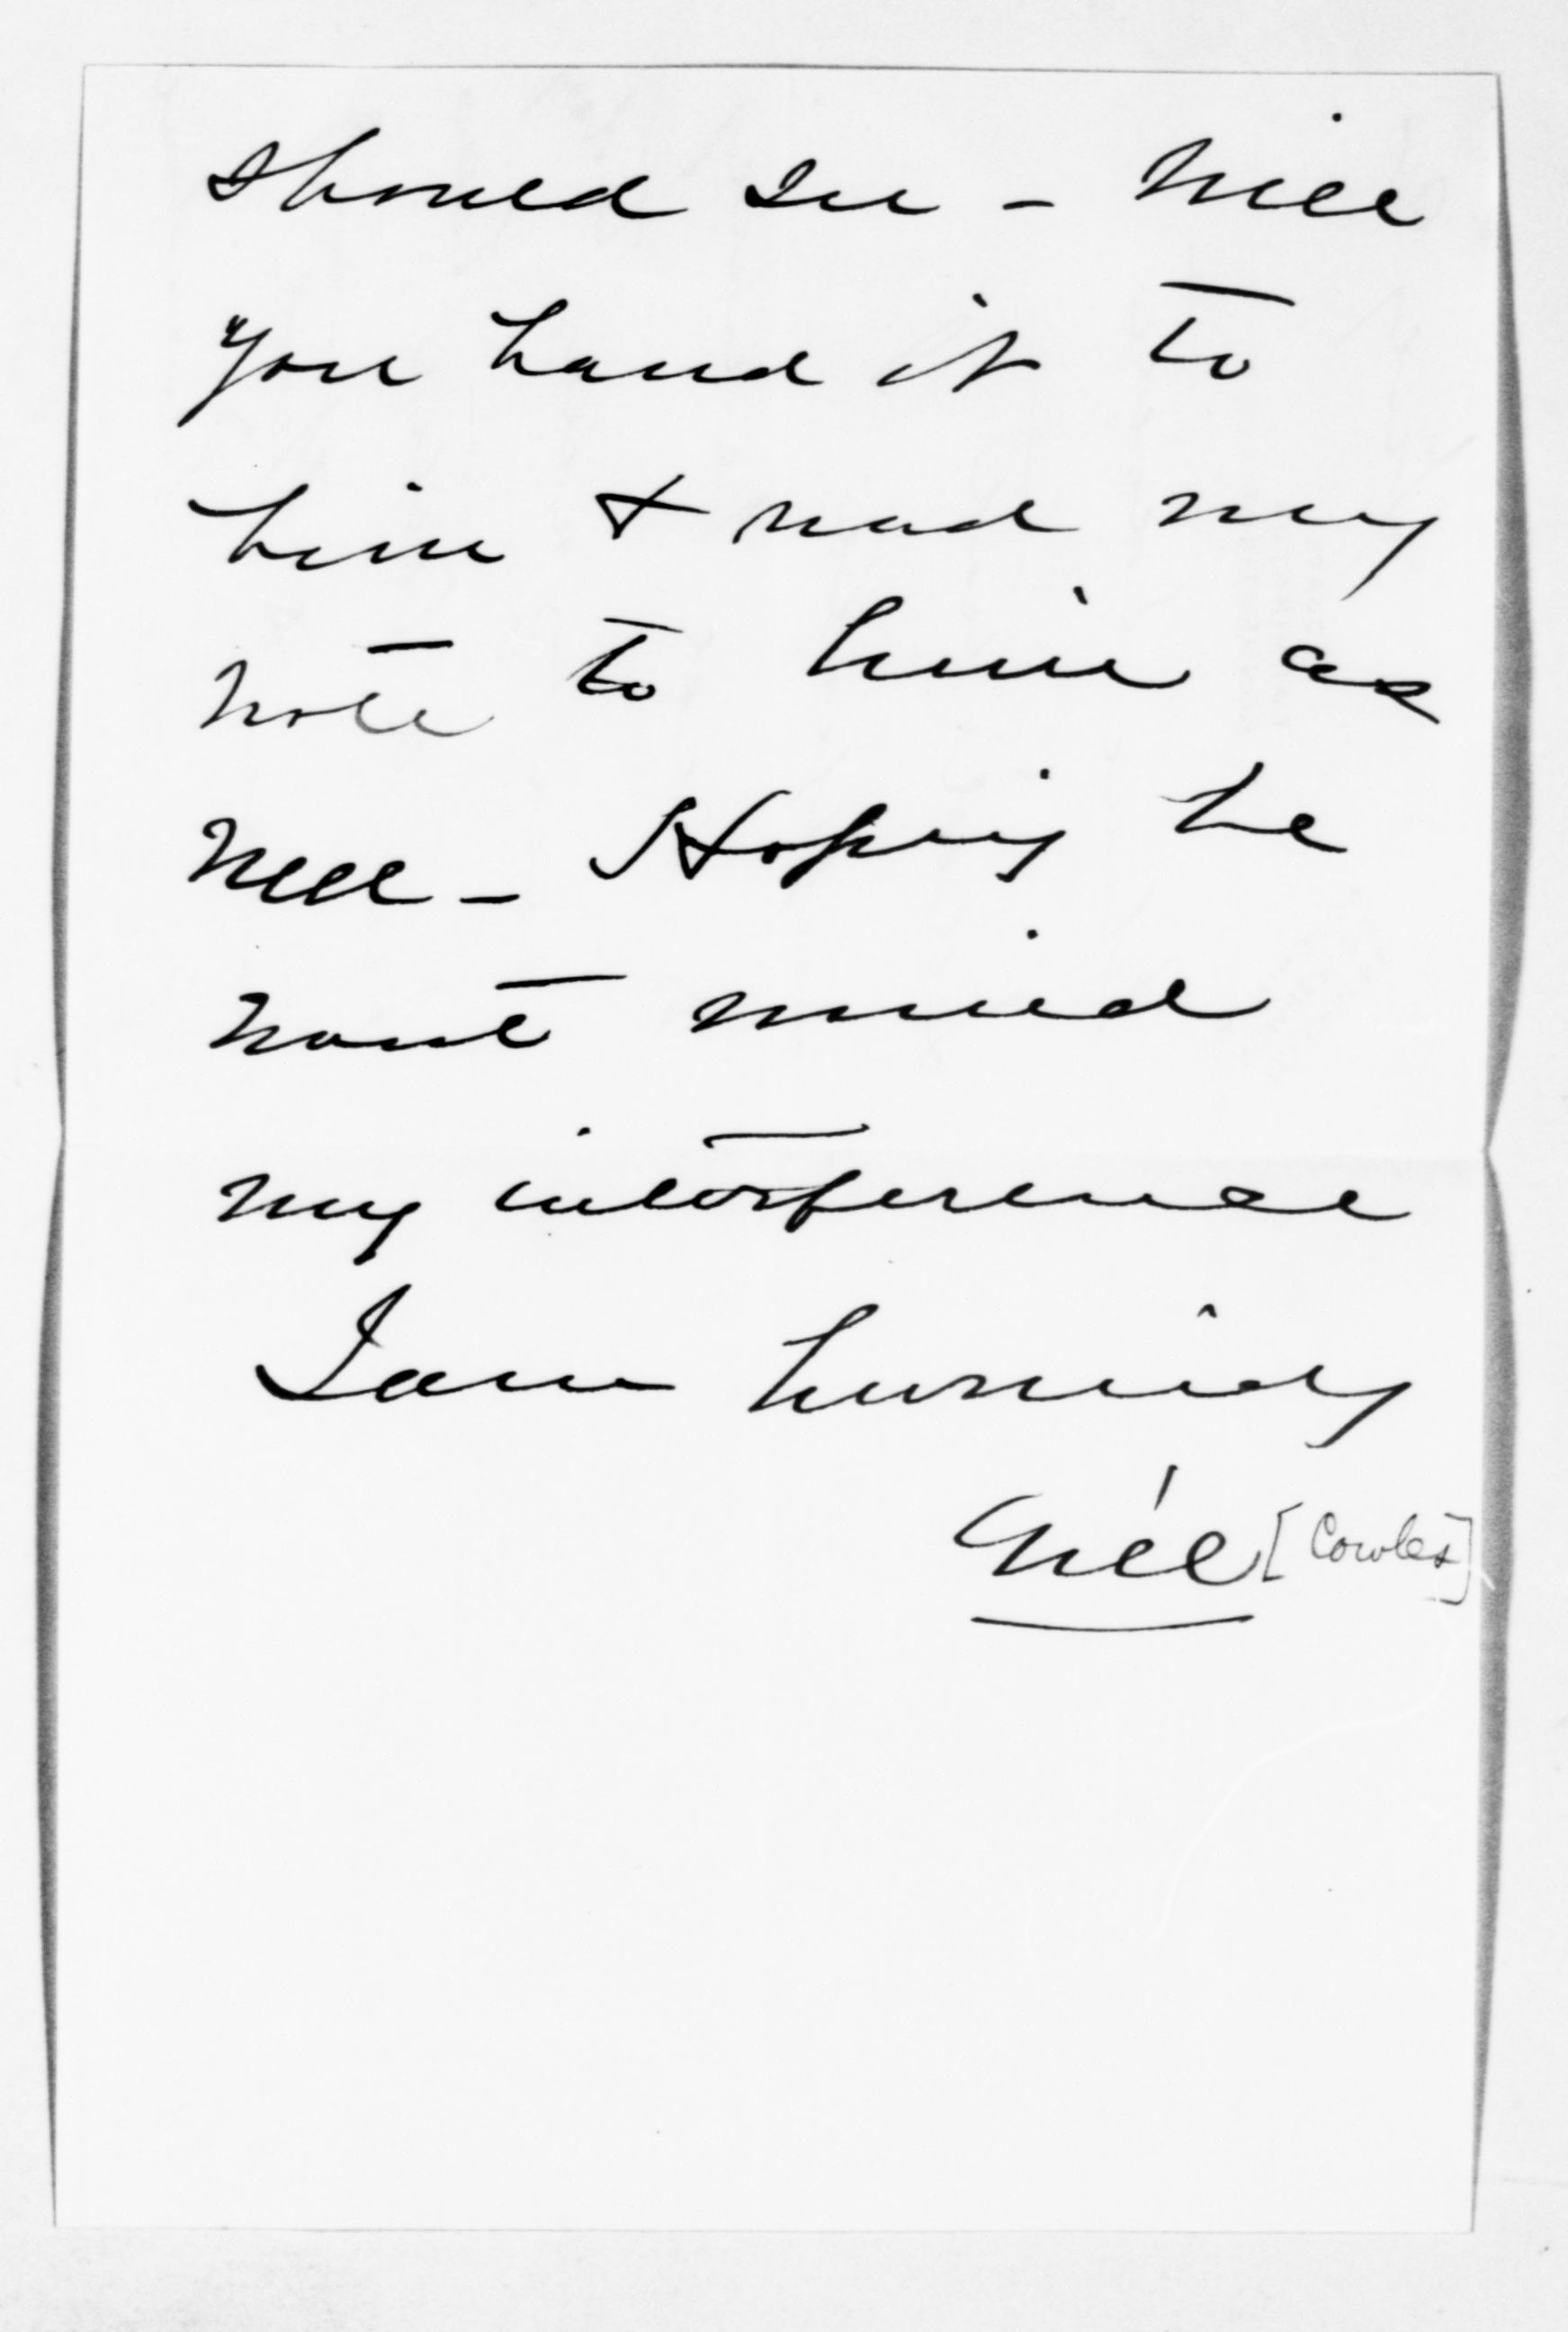 should see - Will
you hand it to
him & read my
note to him as
well - Hoping he
wont mind
my interference
I am hurriedly
Will [Cowles]